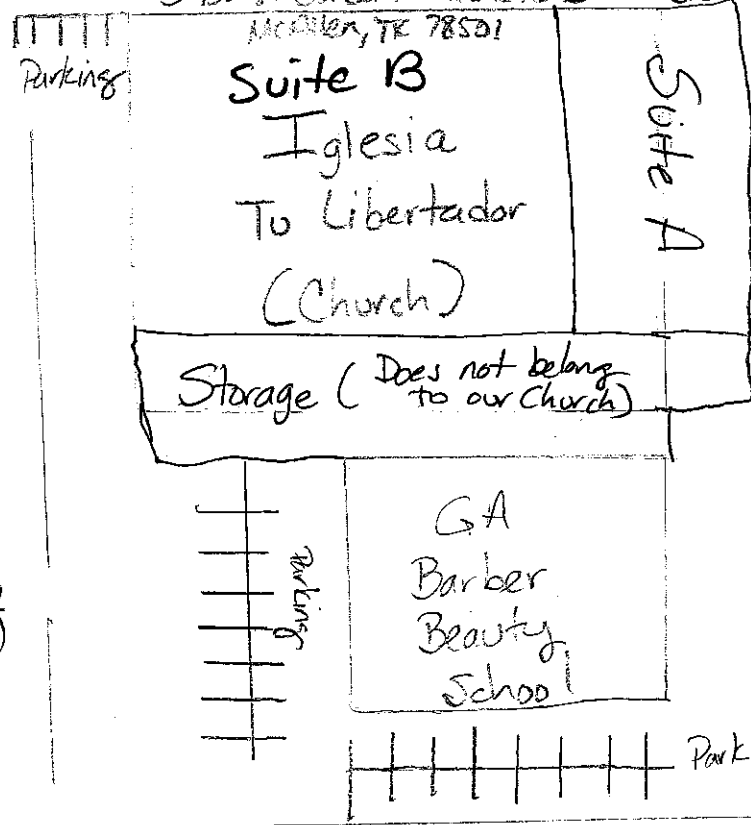 McAllen, TX 78501
Parking
Suite B
Iglesia
Tu Libertador
(Church)
Suite A
Storage (Does not belong
to our Church)
Parking
GA
Barber
Beauty
School
Park